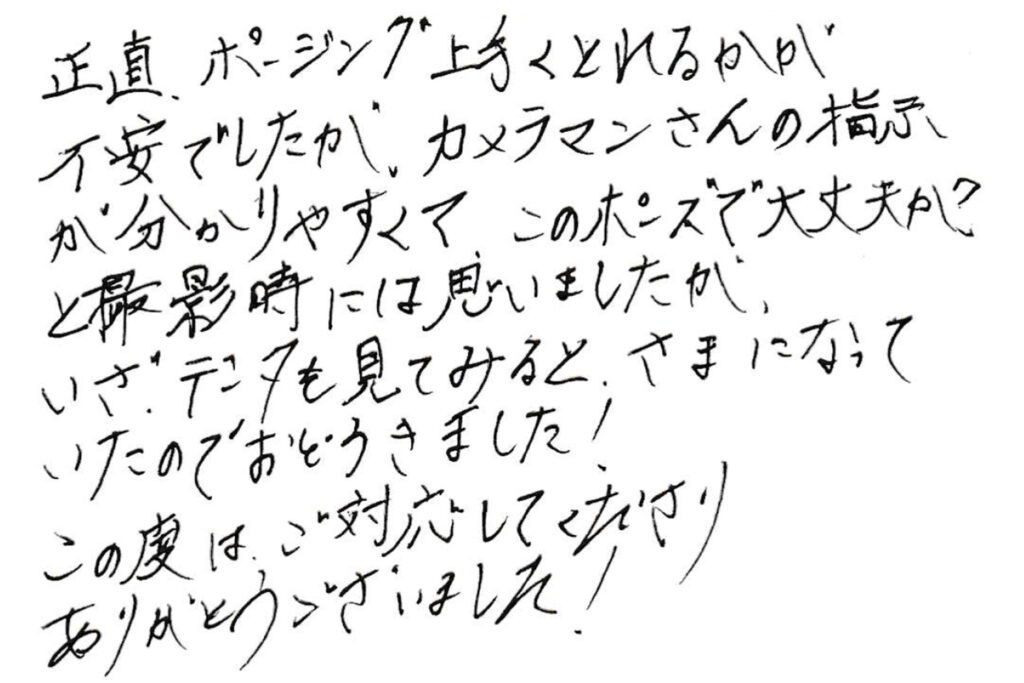 正直、ポージング上手くとれるかが
不安でしたが、カメラマンさんの指示
が分かりやすくて このポーズで大丈夫か?
と撮影時には思いましたが、
いざ、データを見てみると、さまになって
いたのでおどろきました!
この度は、ご対応してくださり
ありがとうございました!